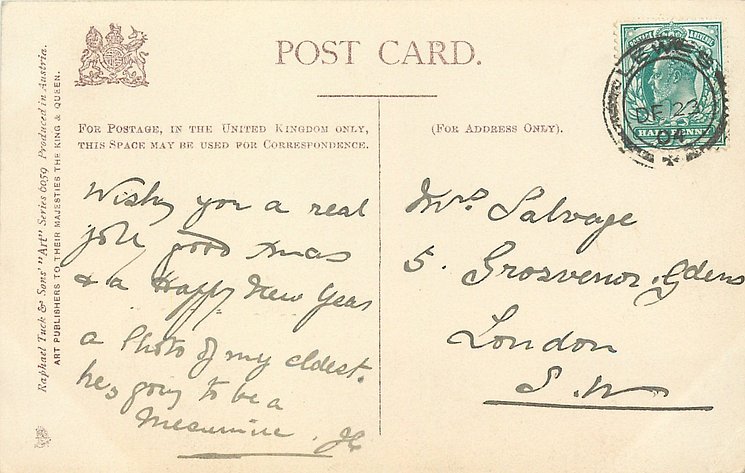 POST CARD.
FOR POSTAGE, IN THE UNITED KINGDOM ONLY,
THIS SPACE MAY BE USED FOR CORRESPONDENCE.
(FOR ADDRESS ONLY).
Raphael Tuck & Sons' "Art" Series 6059 Produced in Austria.
ART PUBLISHERS TO THEIR MAJESTIES THE KING & QUEEN.
LEWES
23
04
HALFPENNY
Wishing you a real
joll good Xmas
& a Happy New Year
a Photo of my eldest.
he, going to be a
Mrs Salvage
5. Grosvenor Gdens
London
S.W